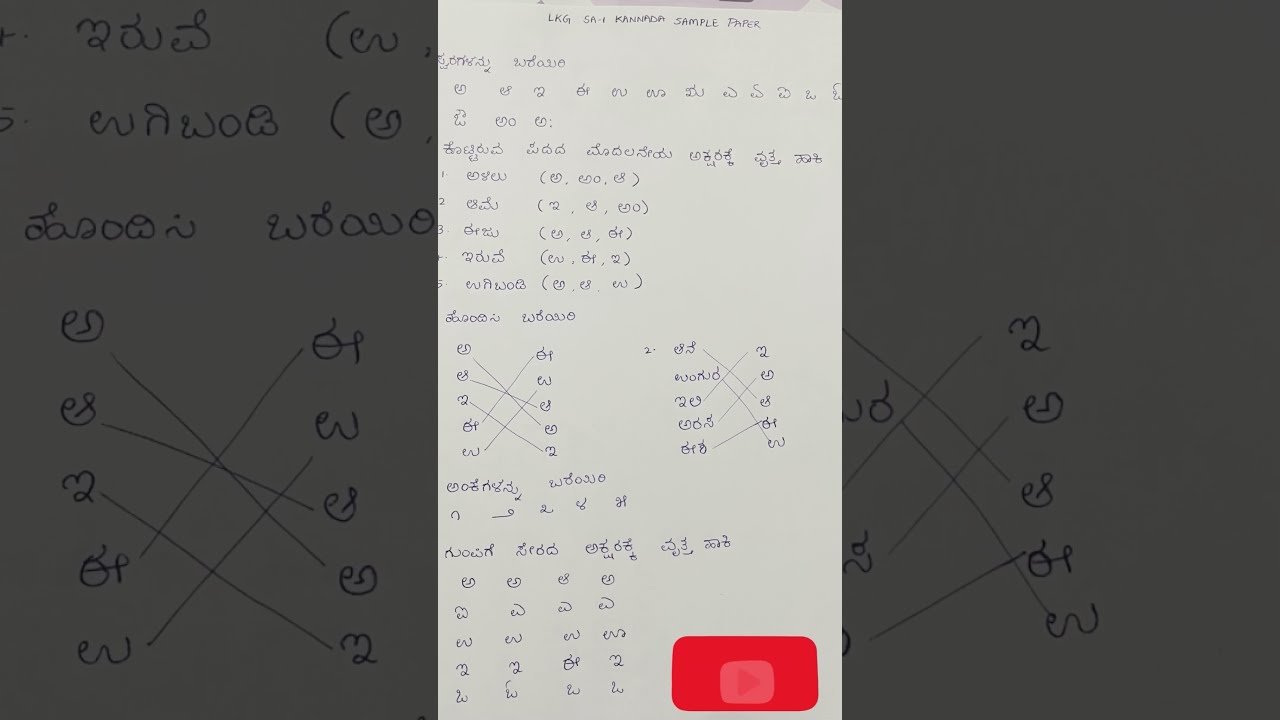 LKG SA-1 KANNADA SAMPLE PAPER
ಸ್ವರಗಳನ್ನು ಬರೆಯಿರಿ
ಅ ಆ ಇ ಈ ಉ ಊ ಋ ಎ ಏ ಐ ಒ ಓ
ಔ ಅಂ ಅ:
ಕೊಟ್ಟಿರುವ ಪದದ ಮೊದಲನೇಯ ಅಕ್ಷರಕ್ಕೆ ವೃತ್ತ ಹಾಕಿ
1. ಅಳಿಲು (ಅ, ಅಂ, ಆ)
2 ಆಮೆ (ಇ, ಆ, ಅಂ)
3. ಈಜು (ಅ, ಆ, ಈ)
4. ಇರುವೆ (ಉ, ಈ, ಇ)
5. ಉಗಿಬಂಡಿ (ಅ, ಆ, ಉ)
ಹೊಂದಿಸಿ ಬರೆಯಿರಿ
ಅ ಈ 2. ಆನೆ ಇ
ಆ ಉ ಉಂಗುರ ಅ
ಇ ಆ ಇಲಿ ಆ
ಈ ಅ ಅರಸ ಈ
ಉ ಇ ಈಶ ಉ
ಅಂಕೆಗಳನ್ನು ಬರೆಯಿರಿ
೧ ೨ ೩ ೪ ೫
ಗುಂಪಿಗೆ ಸೇರದ ಅಕ್ಷರಕ್ಕೆ ವೃತ್ತ ಹಾಕಿ
ಅ ಅ ಆ ಅ
ಐ ಎ ಎ ಎ
ಉ ಉ ಉ ಊ
ಇ ಇ ಈ ಇ
ಒ ಓ ಒ ಒ